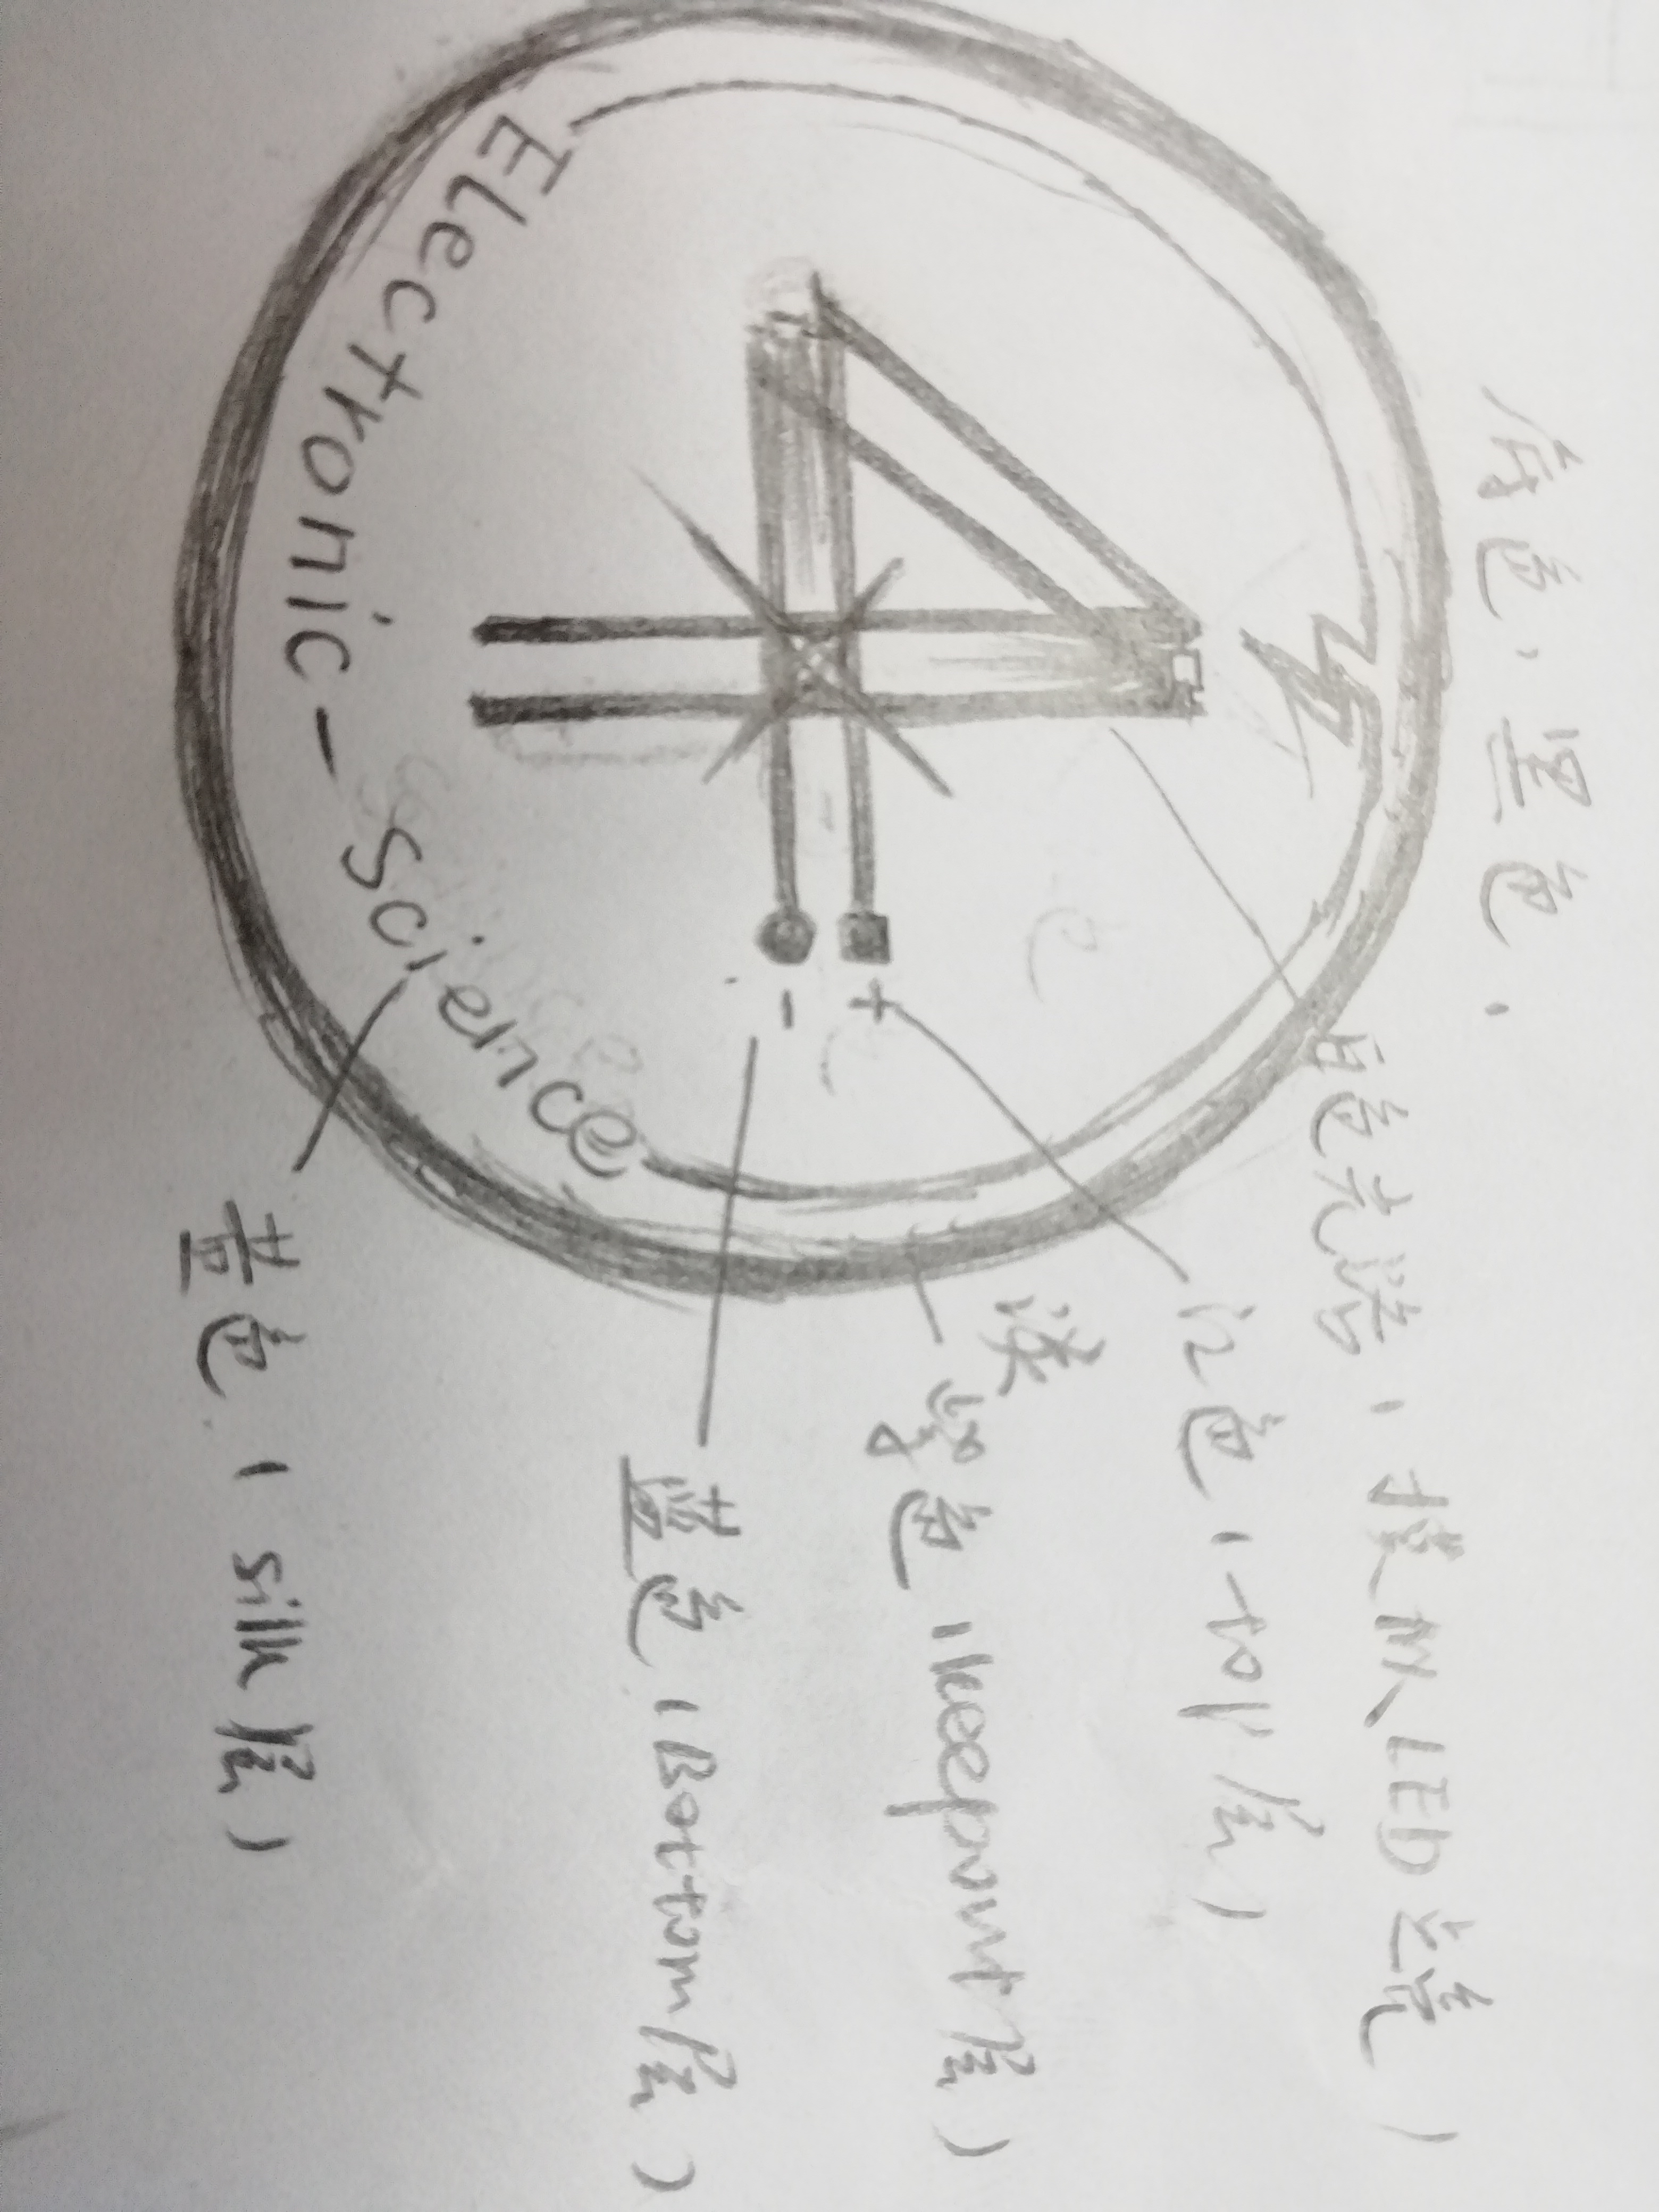 底色，黑色.
白色光路，摸拟LED点亮）
江色（top层）
淡
紫色（keepout层）
4
+
-
蓝色（Bottom层）
Electronic-Science
黄色.（silk层）